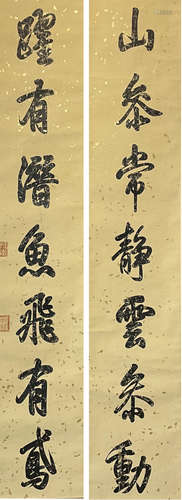 山參常靜雲參動
躍有潛魚飛有鳶